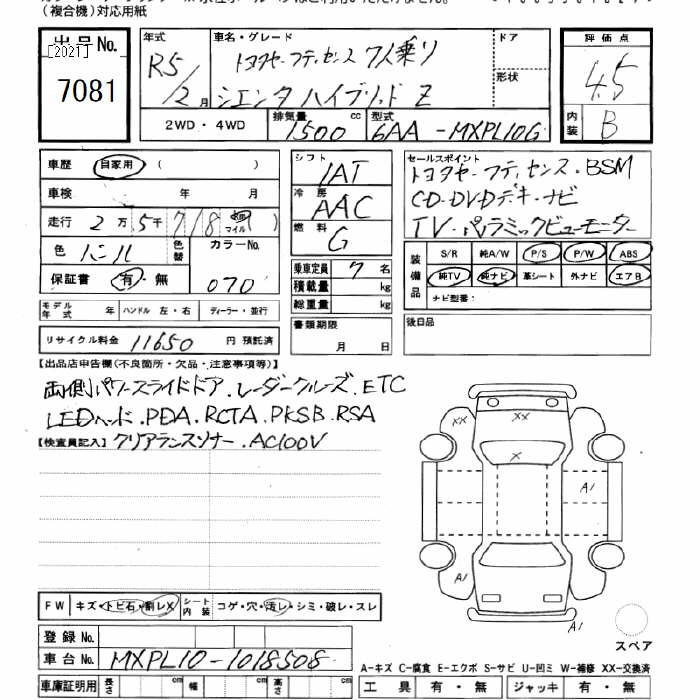 (複合機)対応用紙
出品No.
[2021]
7081
年式
R5/2月
車名・グレード
トヨタセーフティセンス 7人乗り
シエンタ ハイブリッド Z
ドア
形状
2WD・4WD
排気量 1500 cc
型式 6AA-MXPL10G
評価点
4.5
内装 B
車歴 自家用 ( )
車検 年 月
走行 2万5千718 km マイル
色 パール 色替 カラーNo.
保証書 有・無 070
モデル年式 年 ハンドル 左・右 ディーラー・並行
リサイクル料金 11650 円 預託済
シフト IAT
冷房 AAC
燃料 G
乗車定員 7 名
積載量 kg
総重量 kg
書類期限
月 日
セールスポイント
トヨタセーフティセンス・BSM
CD・DVDデッキ・ナビ
TV・パノラミックビューモニター
装備品 S/R 純A/W P/S P/W ABS
純TV 純ナビ 革シート 外ナビ エアB
ナビ型番:
後日品
【出品店申告欄(不良箇所・欠品・注意事項等)】
両側パワースライドドア.レーダークルーズ.ETC
LEDヘッド.PDA.RCTA.PKSB.RSA
【検査員記入】クリアランスソナー.AC100V
XX
XX
X
A1
A1
A1
スペア
FW キズ・トビ石・割レX シート内装 コゲ・穴・汚レ・シミ・破レ・スレ
登録No.
車台No. MXPL10-1018508
A-キズ C-腐食 E-エクボ S-サビ U-凹ミ W-補修 XX-交換済
車庫証明用 長さ cm 幅 cm 高さ cm
工具 有・無 ジャッキ 有・無